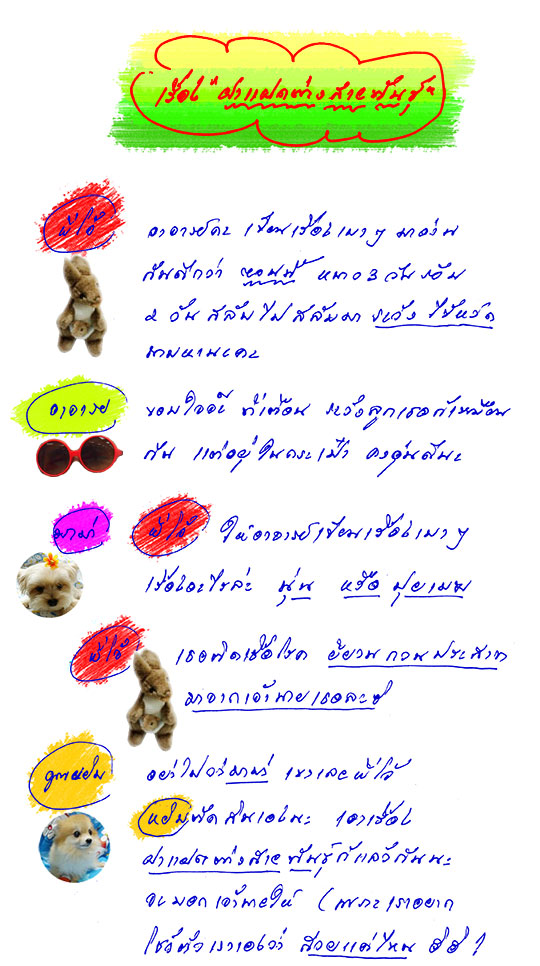 เรื่อง "ฝาแฝดต่างสายพันธุ์"
พี่โจ้
อาจารย์คะ เขียนเรื่องเบาๆ มาอ่าน
กันดีกว่า หนาว 3 วัน ร้อน
2 วัน สลับไปสลับมา ระวัง ไข้หวัด
ถามหานะคะ
อาจารย์
ขอบใจจ๊ะ ที่เตือน ระวังลูกเธอก็เหมือน
กัน แต่อยู่ในกระเป๋า คงอุ่นดีนะ
พี่โจ้ ให้อาจารย์เขียนเรื่องเบาๆ
เรื่องอะไรล่ะ นุ่น หรือ ปุยเมฆ
พี่โจ้
เธอติดเชื้อโรค ยียวนกวนประสาท
มาจากเจ้านายเธอละซิ
อย่าไปว่า เขาเลยพี่โจ้
เอาเรื่อง
ฝาแฝดต่างสายพันธุ์ก็แล้วกันนะ
จะบอกเจ้านายให้ (เพราะเราอยาก
โชว์ตัวเราเองว่า สวยแค่ไหน ฮิฮิ)